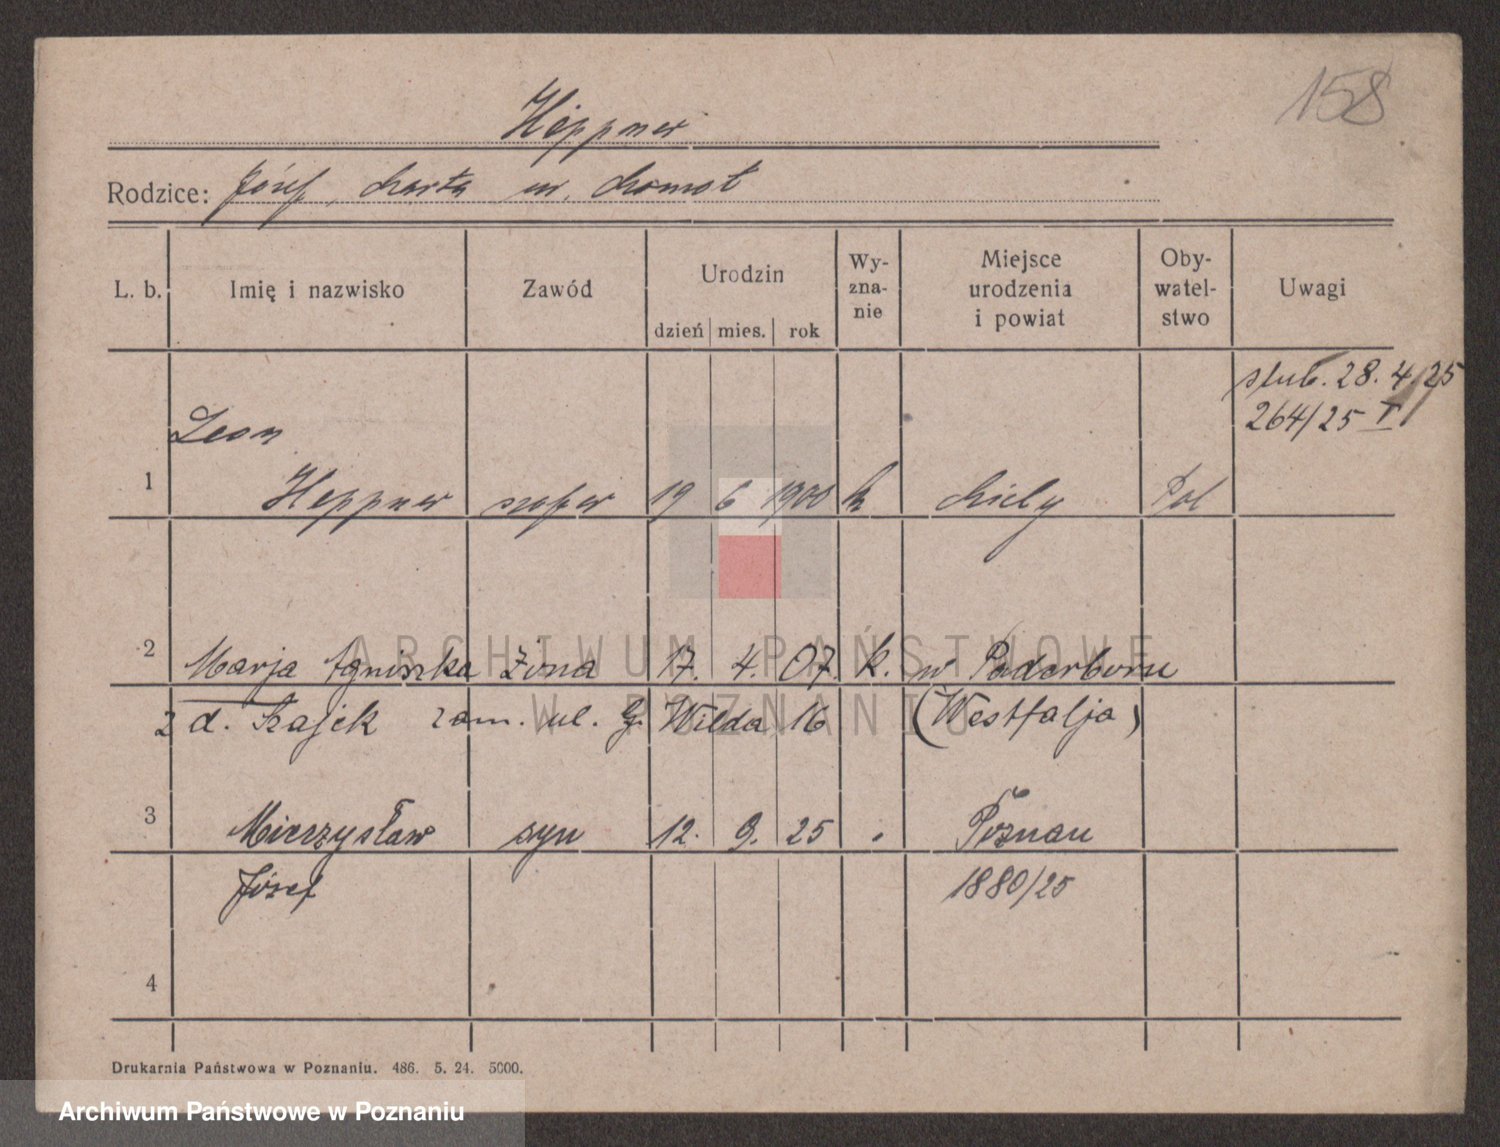 158
Heppner
Rodzice: Józef, Marta ur. Chomot
L. b. Imię i nazwisko Zawód Urodzin dzień mies. rok Wy-zna-nie Miejsce urodzenia i powiat Oby-watel-stwo Uwagi
ślub. 28. 4. 25
264/25 I
Leon
1 Heppner szofer 19 6 1900 k Pol
2 Marja Agniszka żona 17. 4. 07. k. w Paderbornu
z d. Szajek zam. ul. G. Wilda 16 (Westfalja)
3 Mieczysław syn 12. 9. 25 Poznań
Józef 1880/25
4
Drukarnia Państwowa w Poznaniu. 486. 5. 24. 5000.
ARCHIWUM PAŃSTWOWE
W POZNANIU
Archiwum Państwowe w Poznaniu